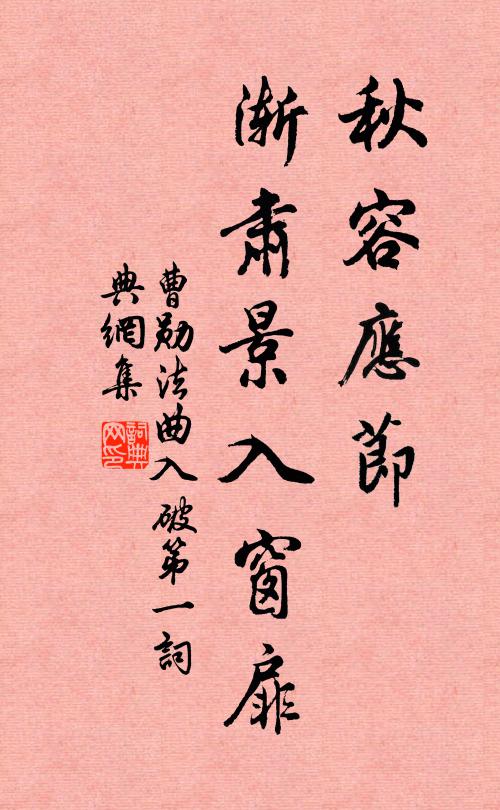 秋容應節
漸肅景入窗扉
曹勛法曲入破第一詞
典網集
詞典網印